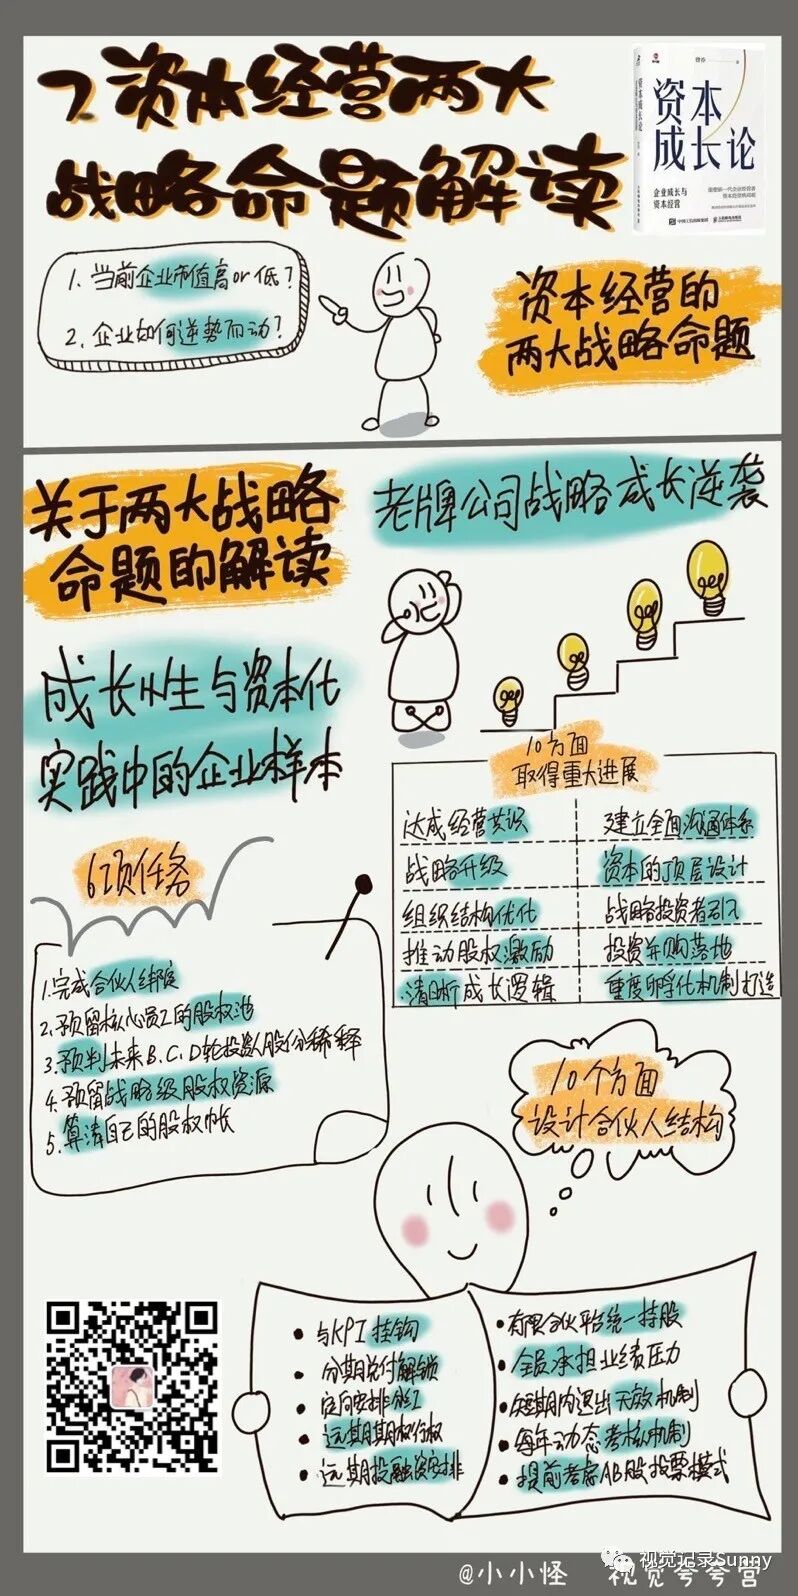 7.资本经营两大
战略命题解读
曾乔
资本
成长论
企业成长与
资本经营
1. 当前企业市值高or低?
2. 企业如何逆势而动?
资本经营的
两大战略命题
关于两大战略
命题的解读
老牌公司战略成长逆袭
成长性与资本化
实践中的企业样本
10方面
取得重大进展
达成经营共识
建立全面沟通体系
战略升级
资本的顶层设计
组织结构优化
战略投资者引入
推动股权激励
投资并购落地
清晰成长逻辑
重度孵化机制打造
6项任务
1.完成合伙人绑定
2.预留核心员工的股权池
3.预判未来B.C.D轮投资人股份稀释
4.预留战略级股权资源
5.算清自己的股权帐
10个方面
设计合伙人结构
与KPI挂钩
分期兑付解锁
定向安排员工
远期期权行权
远期投融资安排
有限合伙平台统一持股
全员承担业绩压力
短期内退出无效机制
每年动态考核机制
提前考虑AB股投票模式
视觉记录Sunny
@小小怪 视觉夸夸营